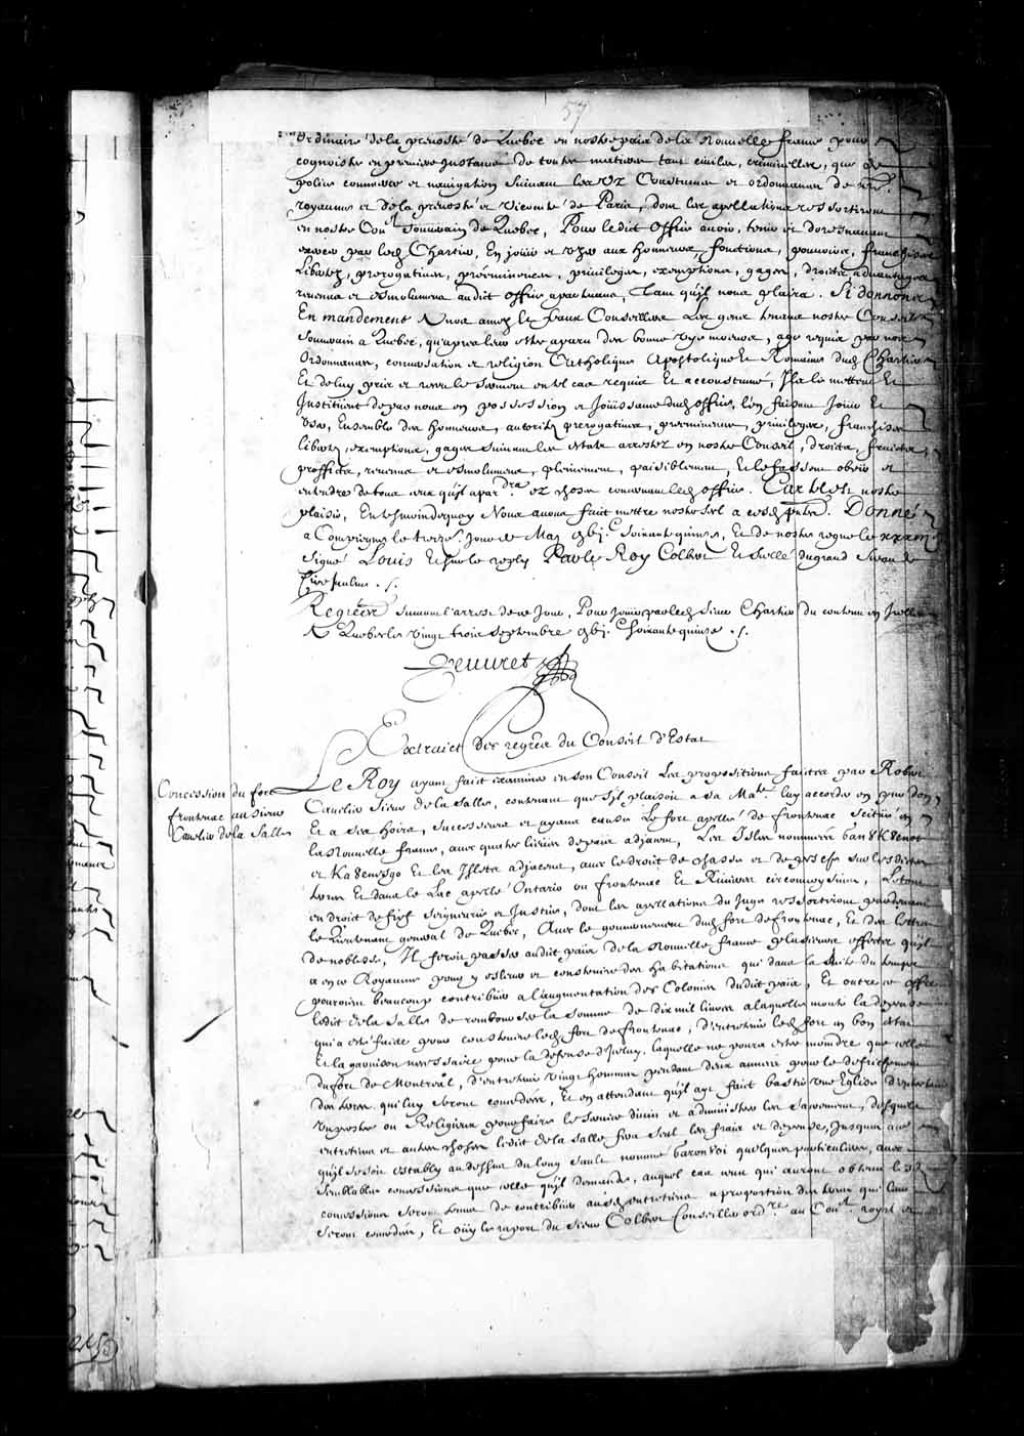 57
ordinaire de la prevosté de Quebec en nostre païs de la Nouuelle france pour
cognoistre en premiere Instance de toutes matieres tant ciuilles, criminelles, que de
police commerce et nauigation suiuant les Vz Coustumes et ordonnances de nre.
royaume et de la preuosté et Vicomté de Paris, dont les apellations ressortiront
en nostre Conl souuerain de Quebec, Pour ledict Office auoir, tenir et doresnauant
exercer par led Chartier, En jouir et vser aux honneurs, fonctions, pouuoirs, franchises
Libertez, prerogatiues, prééminences, priuileges, exemptions, gages, droicts, aduantages
reuenus et esmolumens audict Office apartenans, Tant qu'il nous plaira. Si donnons
En mandement A nos amez et feaux Conseillers Les gens tenans nostre Conseil
Souuerain a Quebec, qu'apres leur estre aparu des bonnes vye moeurs, age requis par nos
Ordonnances, conuersation et religion Catholique Apostolique Et Romaine dud Chartier
Et de luy pris et receu le serment en tel cas requis Et accoustumé, Ils le mettent Et
Instituent de par nous en possession et Joüissance dud office, l'en faisant Jouir Et
vser, Ensemble des honneurs, autoritez prerogatiues, preeminences, priuileges, franchises
libertez, exemptions, gages suiuant les estats arrestez en nostre Conseil, droicts, fruicts
profficts, reuenus et esmolumens, plainement, paisiblement, Et le fassent obeir et
entendre de tous ceux qu'il apardra. ez choses concernant led office. Car tel est nostre
plaisir, En tesmoin de quoy Nous auons fait mettre nostre scel a cesd putes. Donné
a Compiegne le treize. Jour de May gbi.c soixante quinze, Et de nostre regne le xxxiii
Signé Louis Et sur le reply Par le Roy Colbert Et scellé du grand Sceau de
Cire Jaulne ./.
Regrées suiuant l'arrest de ce Jour, Pour jouir par led sieur Chartier du contenu en Icelles
A Quebec le vingt trois septembre gbi.c soixante quinze ./.
Peuuret
Extraict des regres du Conseil d'Estat
Concession du fort
frontenac au sieur
Cauelier de la Salle
Le Roy ayant faict examiner en son Conseil Les propositions faictes par Robert
Cauelier Sieur de la Salle, contenant que s'il plaisoit a sa Mate. luy accorder en pur don
Et a ses hoirs, successeurs et ayans cause Le fort apellé de frontenac scitué en
la Nouuelle france, auec quatre lieües de païs adjacent, Les Isles nommées Gan8K8enot
et Ka8enesgo Et les Islets adjacens, auec le droit de chasse et de pesche sur lesdictes
terres Et dans le Lac apellé Ontario ou frontenac Et Riuieres circonuoysines, Le tout
en droit de fief Seigneurie et Justice, dont les apellations du Juge ressortiront pardeuant
le Lieutenant general de Quebec, Auec le gouuernement dud fort de frontenac, Et des lettres
de noblesse, Il feroit passer audict païs de la Nouuelle france plusieurs effects qu'il
a en ce Royaume pour y esleuer et construire des habitations qui dans la suite du temps
pouroient beaucoup contribüer a l'augmentation des Colonies dudit païs, Et outre ce offre
ledit de la Salle de rembourser la somme de dix mil liures a laquelle monte la depense
qui a esté faite pour construire led fort de frontenac, d'entretenir led fort en bon estat
Et la garnison necessaire pour la defense d'iceluy, laquelle ne poura estre moindre que celle
du fort de Montreal, d'entretenir vingt hommes pendant deux années pour le defrichement
des terres qui luy seront concedées, Et en attendant qu'il ayt fait bastir vne Eglise d'entretenir
vn prestre ou Religieux pour faire le seruice diuin et administrer les sacremens, desquels
entretiens et autres choses ledit de la Salle fera seul les frais et depense, Jusques a ce
qu'il se soit estably au dessus du long sault nommé baronvoi quelques particuliers, auec
semblables concessions que celle qu'il demande, auquel cas ceux qui auront obtenu lesd
concessions seront tenus de contribüer ausd entretiens a proportion des terres qui leur
seront concedées, Et oüy le raport du Sieur Colbert Conseiller ordre. au Conl. royal et